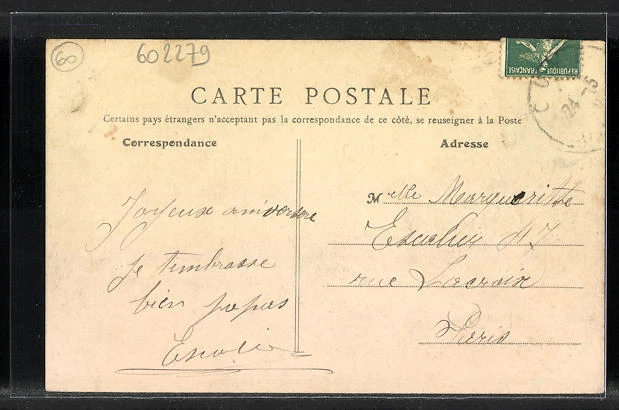 60
602279
RÉPUBLIQUE FRANÇAISE
CARTE POSTALE
Certains pays étrangers n'acceptant pas la correspondance de ce côté, se reuseigner à la Poste
Correspondance
Adresse
Joyeux aniversere
je t'embrasse
bien papas
Melle Marguerithe
47
rue Lacroix
Paris
24